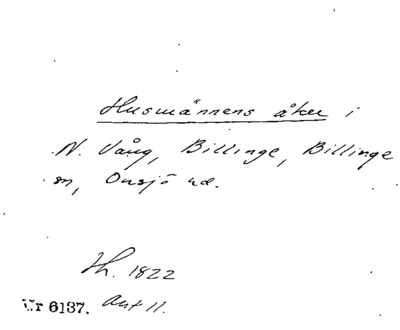 Husmännens åker i
N. Vång, Billinge, Billinge
sn, Onsjö hd.
Lh. 1822
Ur 6137. Akt 11.